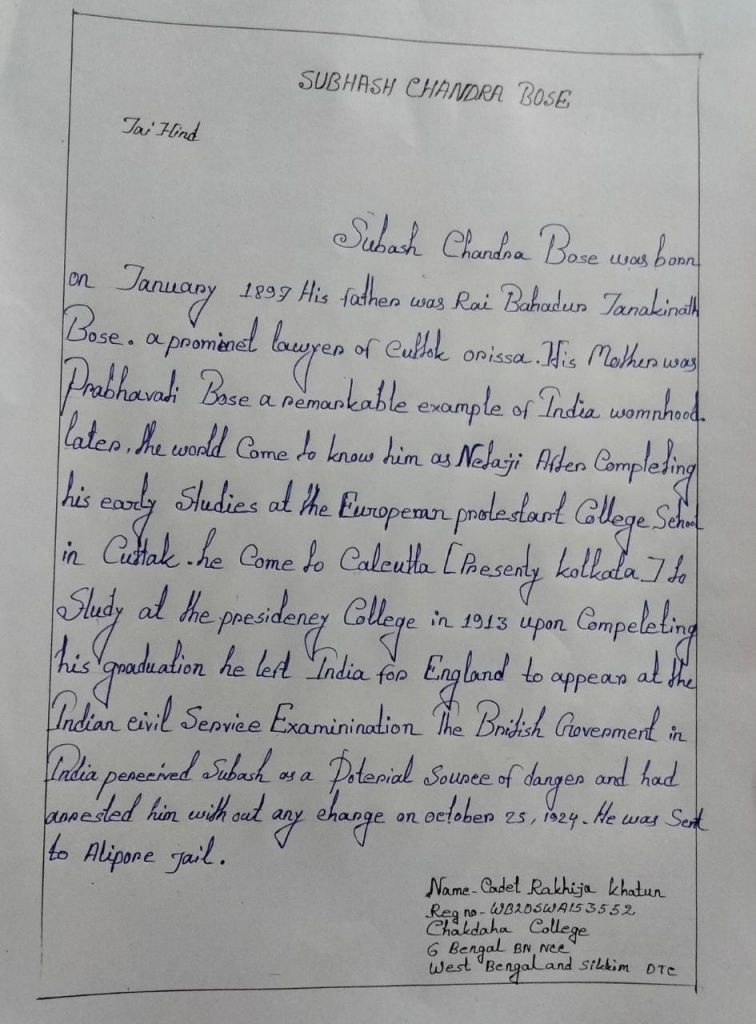 SUBHASH CHANDRA BOSE
Jai Hind
Subash Chandra Bose was born
on January 1897 His father was Rai Bahadur Janakinath
Bose. a prominet lawyer of Cuttok orissa. His Mother was
Prabhavati Bose a remarkable example of India womnhood.
later, the world Come to know him as Netaji After Completing
his early Studies at the Europeran protestant College School
in Cuttak. he Come to Calcutta [Presenty kolkata] to
Study at the presideney College in 1913 upon Compeleting
his graduation he left India for England to appear at the
Indian civil Service Examinination The British Government in
India perceived Subash as a Potenial Source of danger and had
arrested him with out any change on october 25, 1924. He was Sent
to Alipore Jail.
Name-Cadet Rakhija Khatun
Reg no- WB20SWA153552
Chakdaha College
6 Bengal BN Ncc
West Bengal and Sikkim DTE